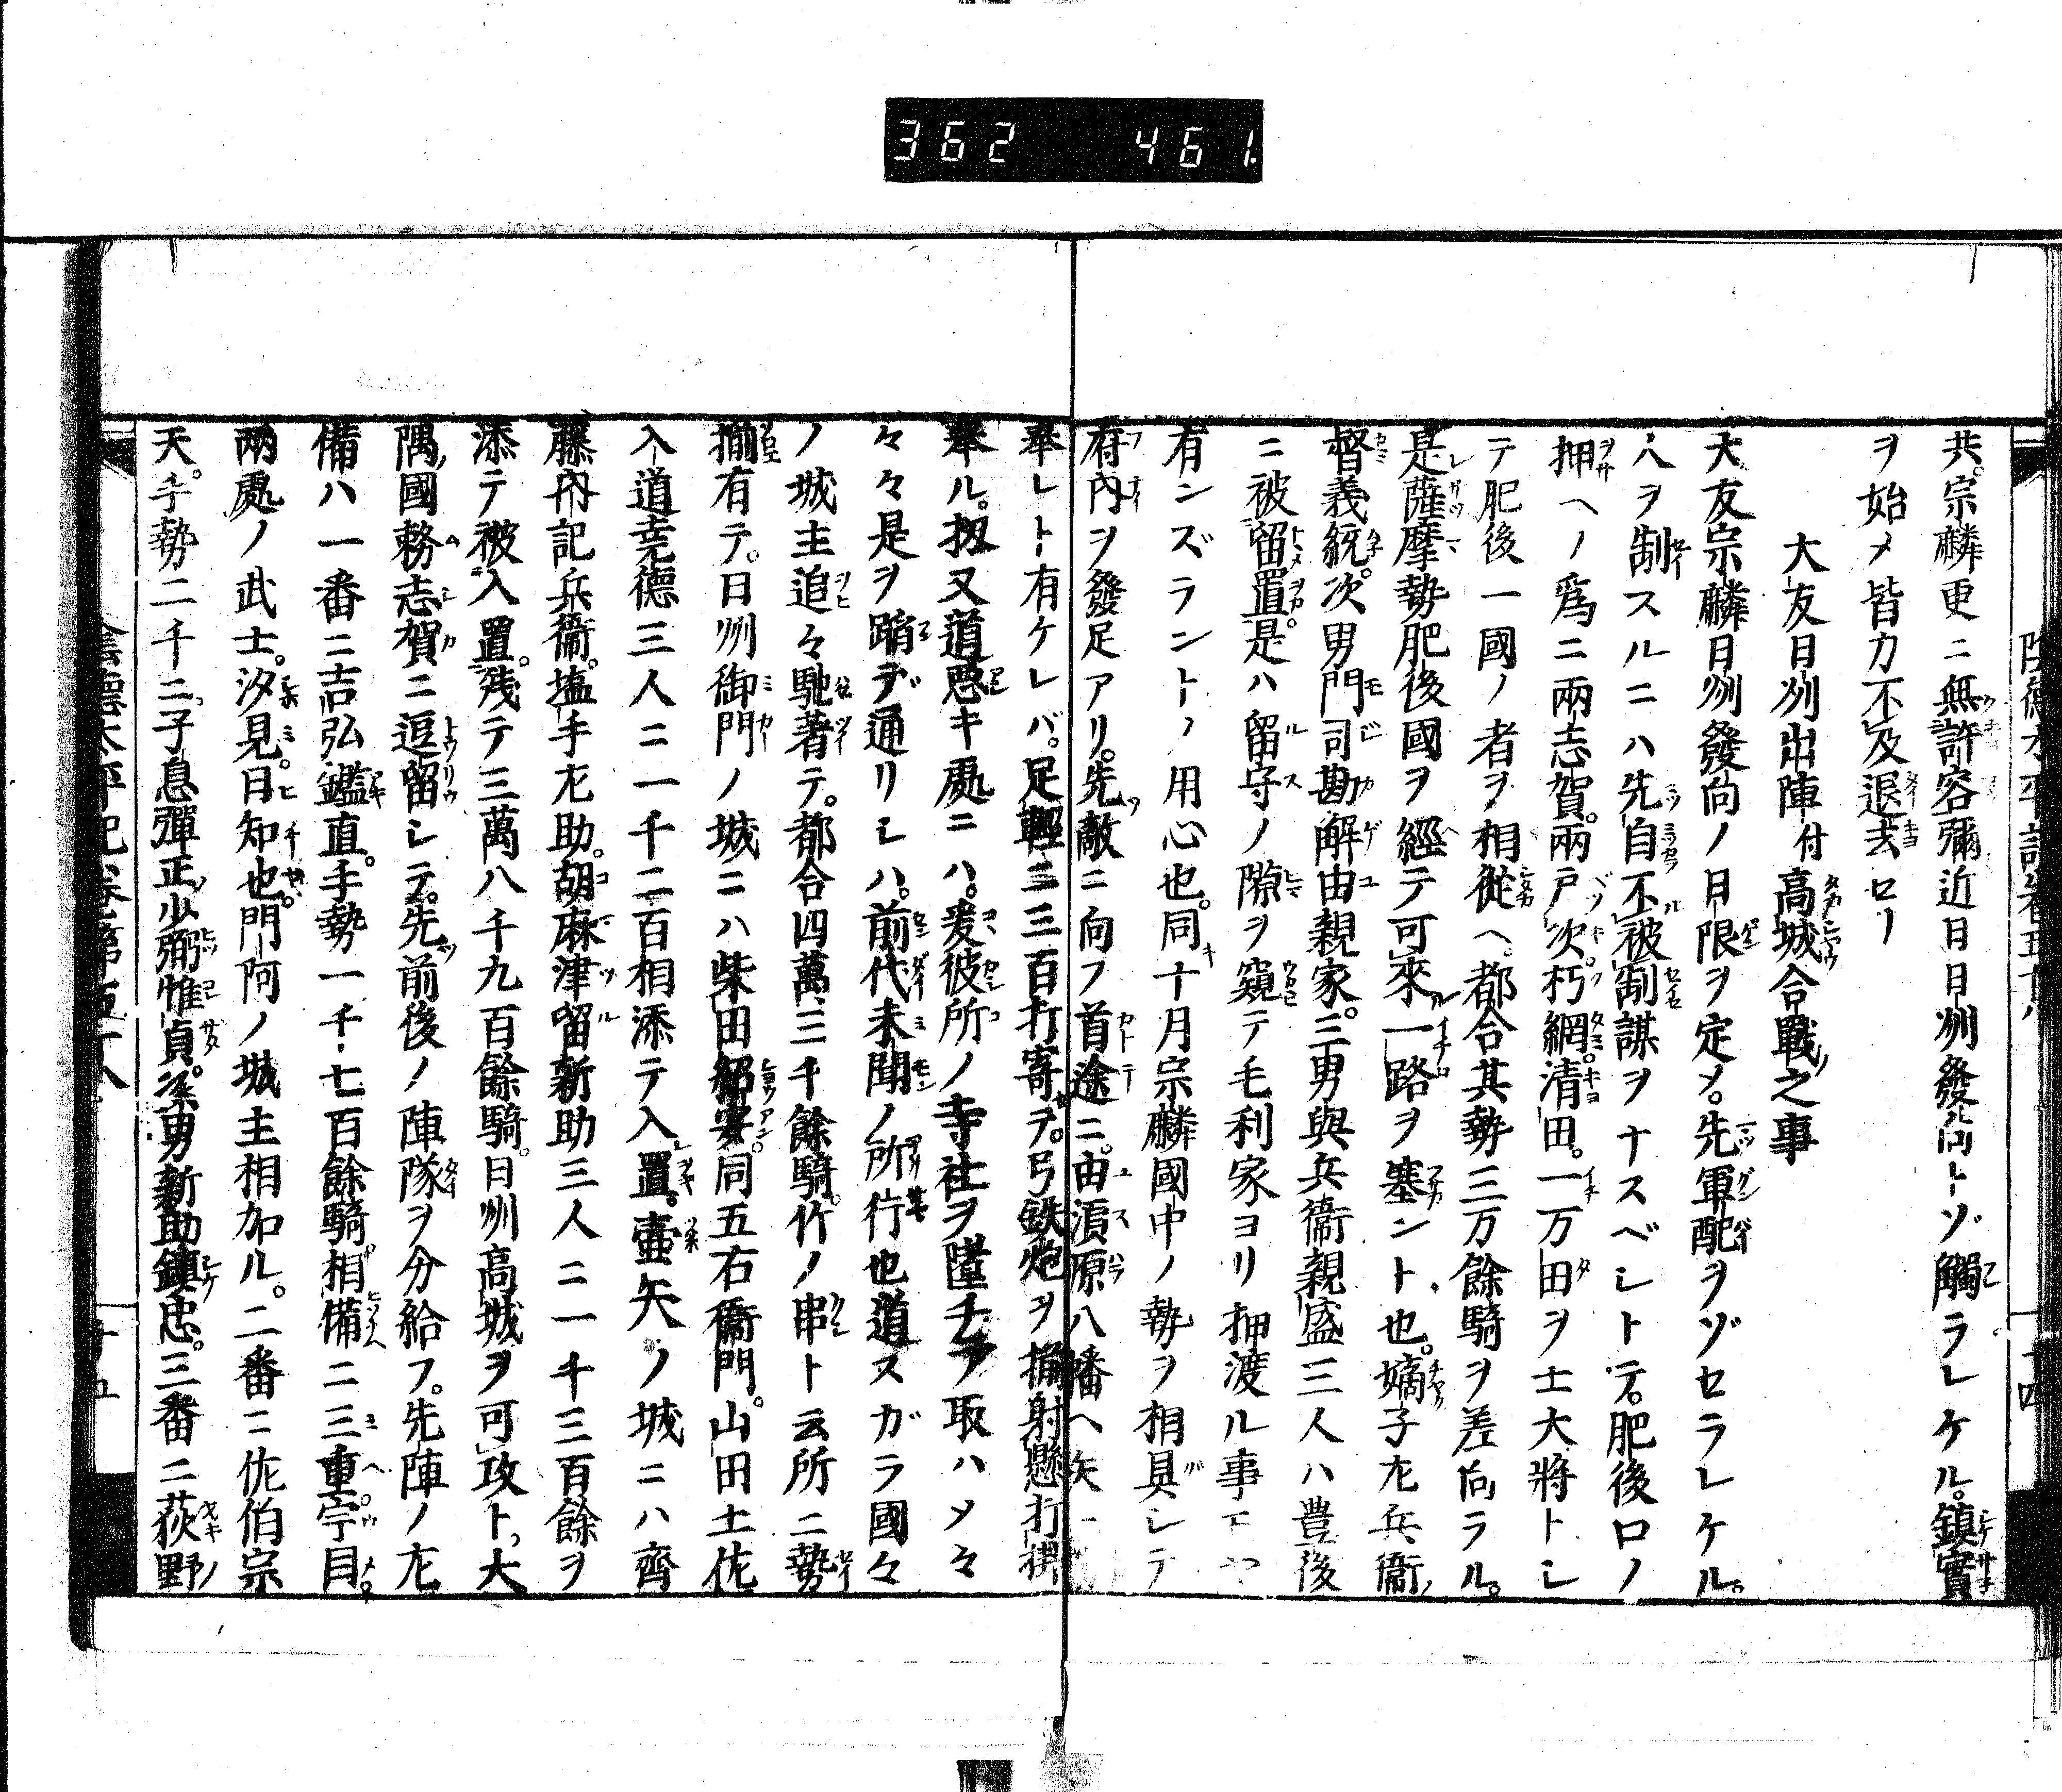 362 461.
共。宗麟更ニ無許容彌近日日州發向トゾ觸ラレケル。鎮實
ヲ始メ皆力不及退去セリ
大友日州出陣付高城合戰之事
大友宗麟日州發向ノ日限ヲ定メ。先軍配ヲゾセラレケル。
人ヲ制スルニハ先自不被制謀ヲナスベシトテ。肥後口ノ
押ヘノ爲ニ兩志賀。兩戸次朽網。清田。一万田ヲ士大將トシ
テ肥後一國ノ者ヲ相從ヘ。都合其勢三万餘騎ヲ差向ラル。
是薩摩勢肥後國ヲ經テ可來一路ヲ塞ントヽ也。嫡子左兵衞
督義統。次男門司勘解由親家。三男與兵衞親盛三人ハ豊後
ニ被留置。是ハ留守ノ隙ヲ窺テ毛利家ヨリ押渡ル事モヤ
有ンズラントノ用心也。同十月宗麟國中ノ勢ヲ相具シテ
府内ヲ發足アリ。先敵ニ向フ首途ニ。由須原八幡ヘ矢一
奉レト有ケレバ。足輕ニ三百打寄テ。弓鉄炮ヲ揃射懸打
奉ル。扨又道惡キ處ニハ。爰彼所ノ寺社ヲ墮チフ取ハメ々
々々是ヲ蹈デ通リシハ。前代未聞ノ所行也道スガラ國々
ノ城主追々馳著テ。都合四萬三千餘騎。竹ノ串ト云所ニ勢
揃有テ。日州御門ノ城ニハ柴田紹安。同五右衞門。山田土佐
入道尭德三人ニ一千二百相添テ入置。壷矢ノ城ニハ齊
藤内記兵衞。塩手左助。胡麻津留新助三人ニ一千三百餘ヲ
添テ被入置。残テ三萬八千九百餘騎。日州高城ヲ可攻ト、大
隅國務志賀ニ逗留シテ。先前後ノ陣隊ヲ分給フ。先陣ノ左
備ハ一番ニ吉弘鑑直。手勢一千七百餘騎。相備ニ三重。宇目。
兩處ノ武士。汐見。日知也。門阿ノ城主相加ル。二番ニ佐伯宗
天。手勢二千ニ子息彈正少弼惟貞。次男新助鎮忠。三番ニ荻野
陰德太平記卷第五十八
十五
十四